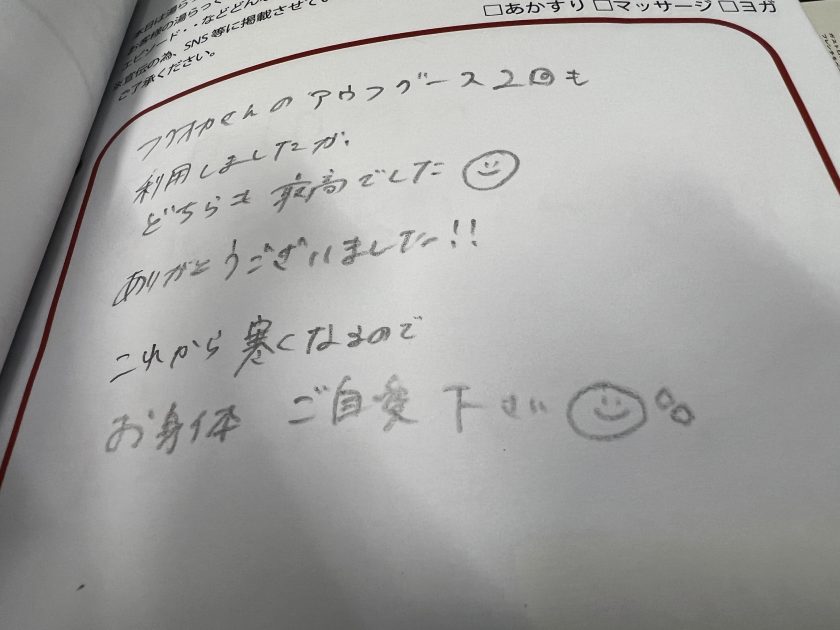 お客様の湯らっく
エピソード・・などどん
宣伝の為、SNS等に掲載させて
ご了承ください。
□あかすり □マッサージ □ヨガ
フクオカくんの アウフグース2回も
利用しましたが、
どちらも 最高でした
ありがとうございました!!
これから寒くなるので
お身体 ご自愛 下さい